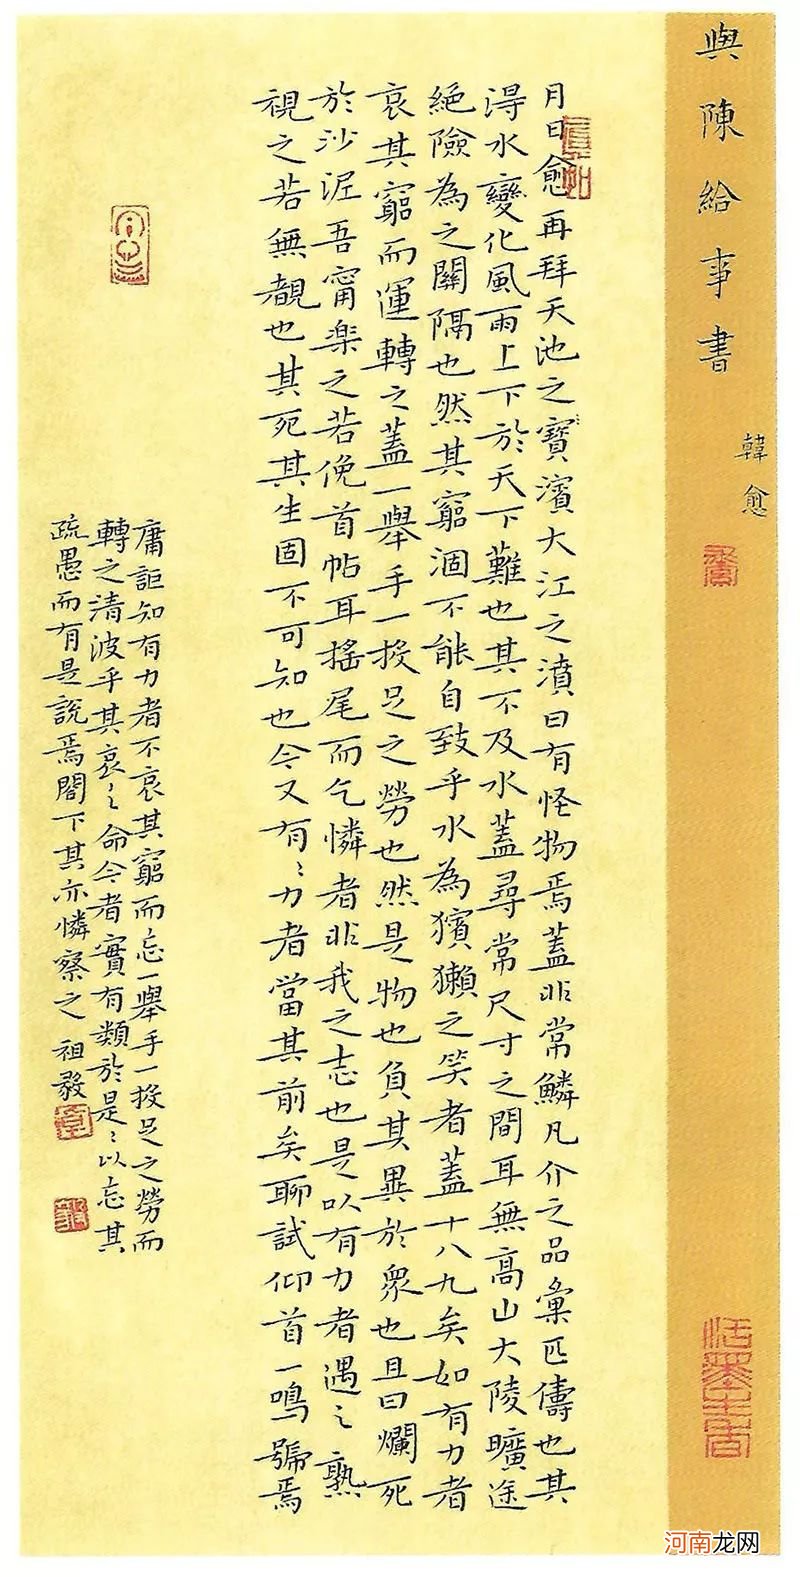 與陳給事書
韓愈
月日愈再拜天池之寶濱大江之濆曰有怪物焉蓋非常鱗凡介之品彙匹儔也其
淂水變化風雨上下於天下難也其不及水蓋尋常尺寸之間耳無高山大陵曠途
絕險為之關隔也然其窮涸不能自致乎水為獱獺之笑者蓋十八九矣如有力者
哀其窮而運轉之蓋一舉手一投足之勞也然是物也負其異於眾也且曰爛死
於沙泥吾甯樂之若俛首帖耳搖尾而乞憐者非我之志也是以有力者遇之熟
視之若無覩也其死其生固不可知也今又有〻力者當其前矣聊試仰首一鳴號焉
庸詎知有力者不哀其窮而忘一舉手一投足之勞而
轉之清波乎其哀〻命今者實有類於是〻以忘其
疏愚而有是說焉閣下其亦憐察之 祖毅
恬墨主者
河南龙网